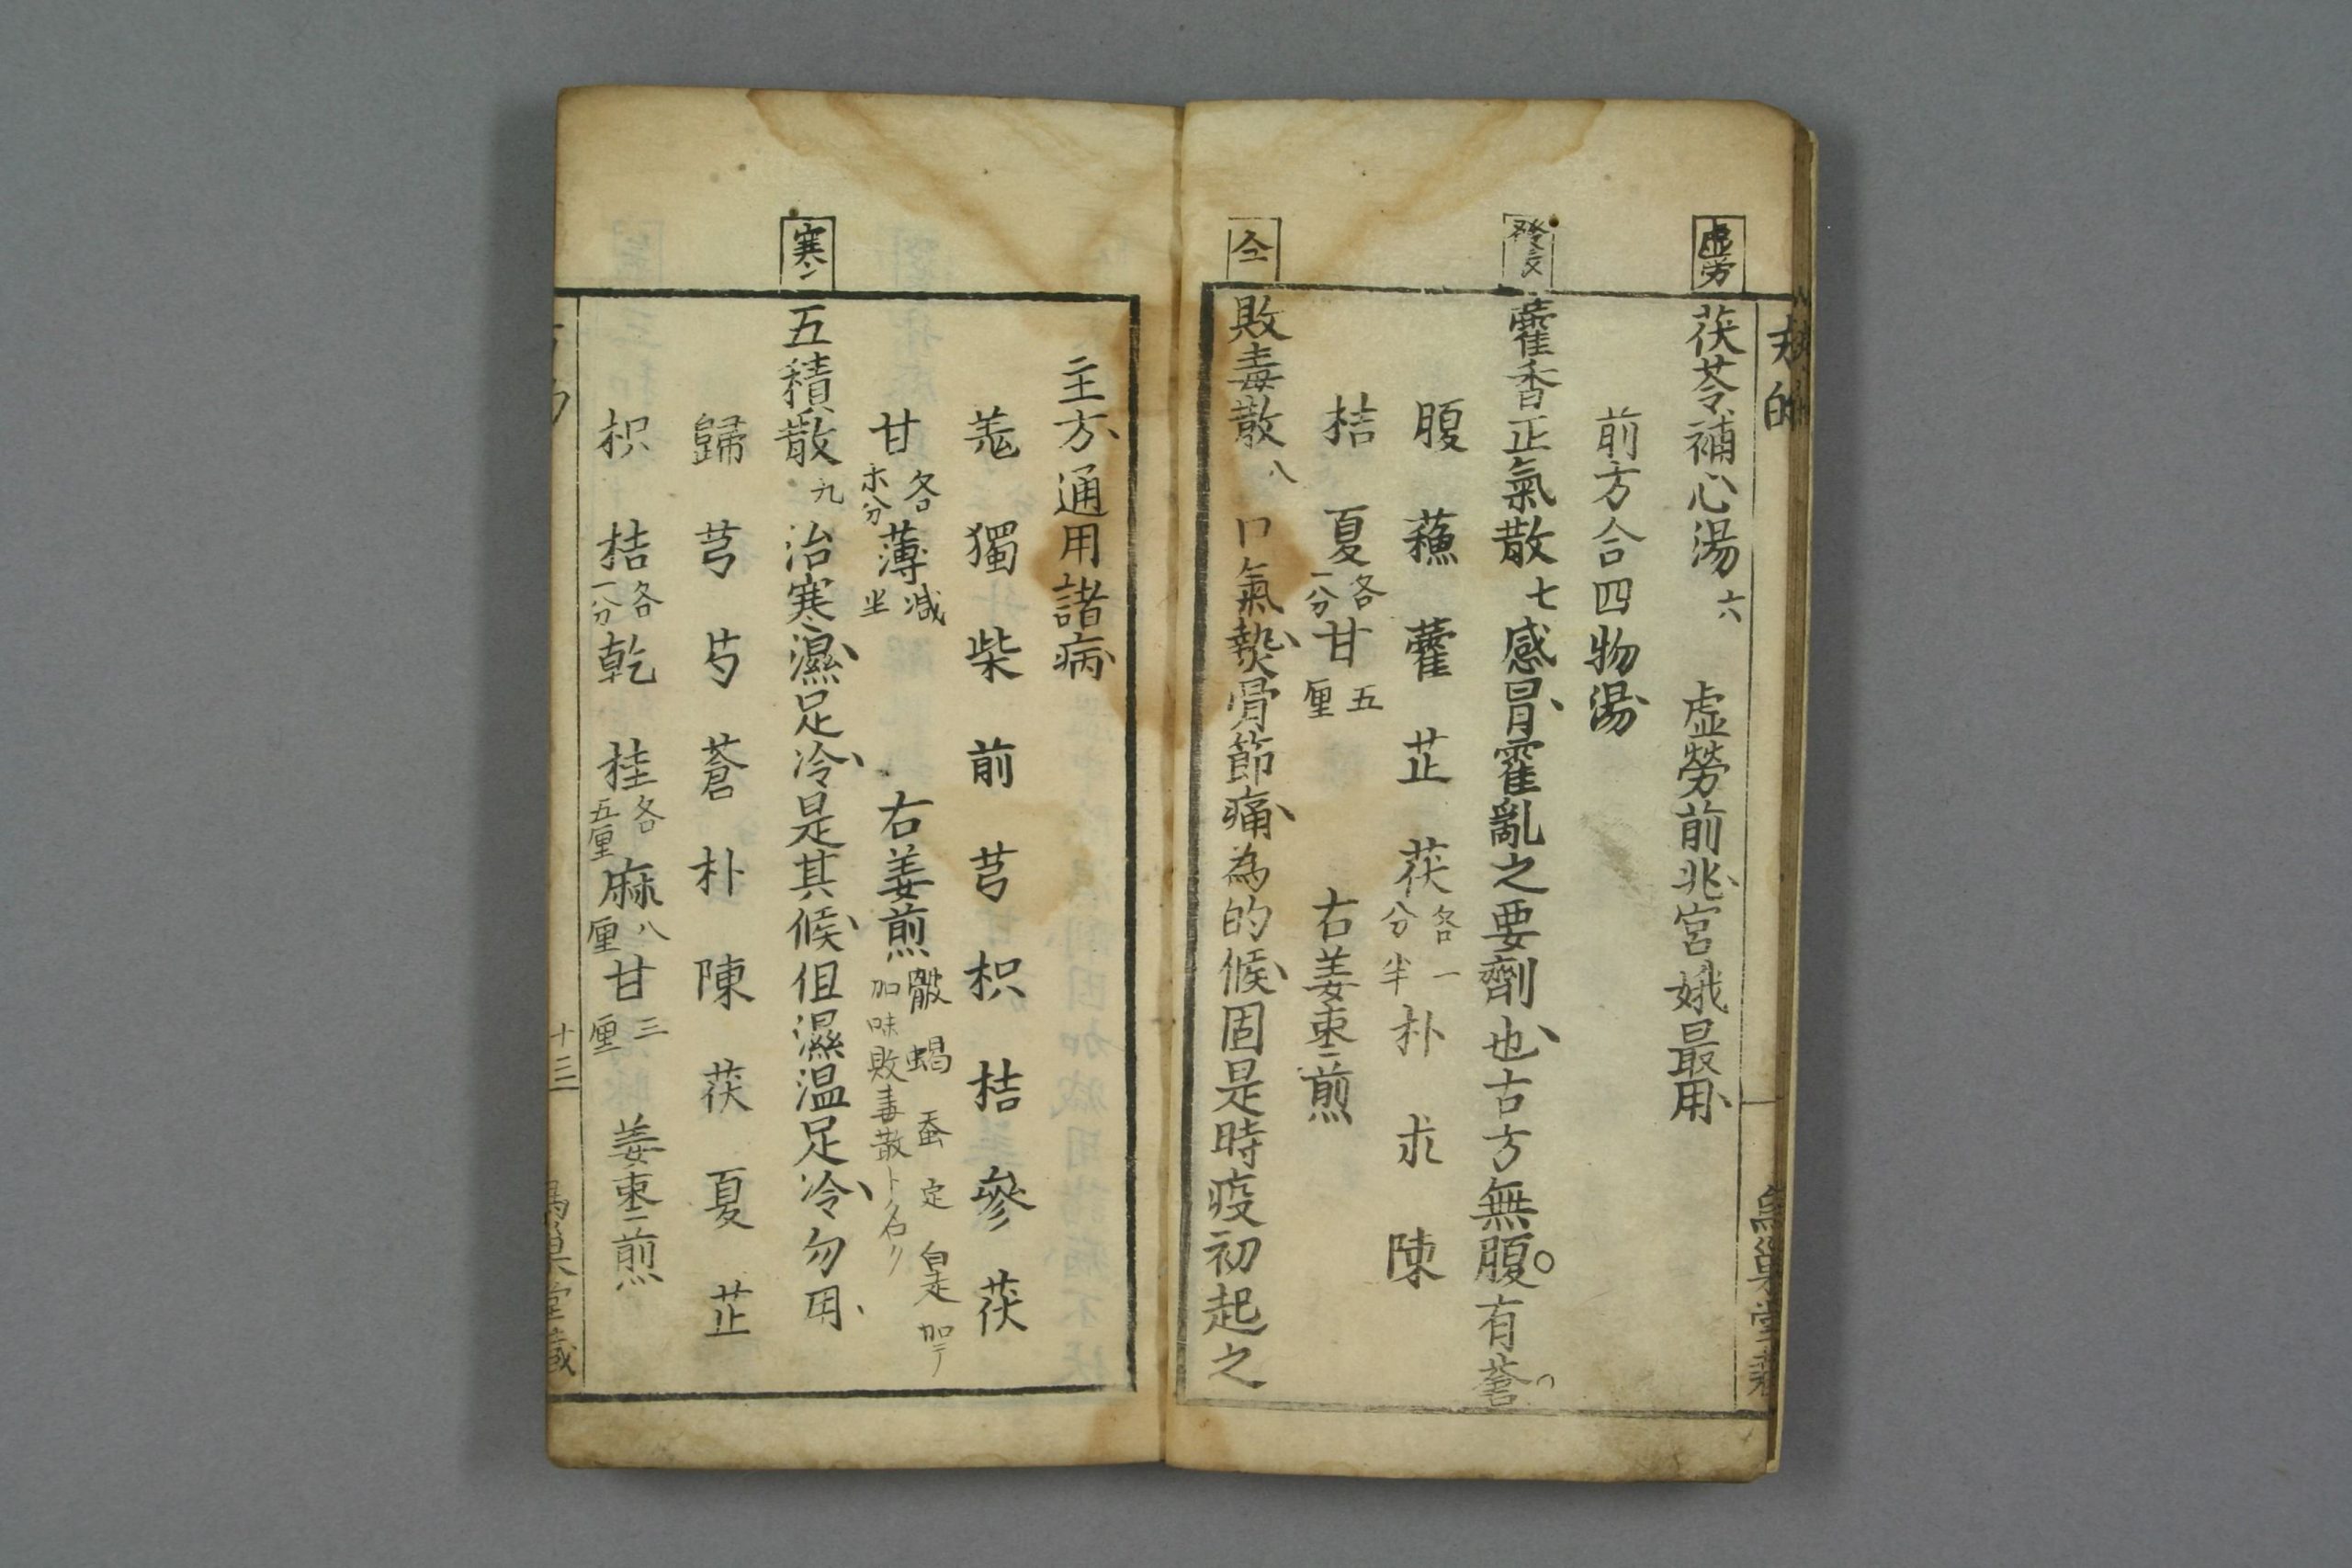 虚労
茯苓補心湯 六 虚勞前兆宮娥最用
前方合四物湯
發
藿香正氣散 七 感冒霍亂之要劑也古方無腹有蒼
腹 蘓 藿 芷 茯 各一分半 朴 朮 陳
桔 夏 各一分 甘 五厘 右姜棗二煎
仝
敗毒散 八 口氣𤍠骨節痛為的候固是時疫初起之
主方通用諸病
羗 獨 柴 前 芎 枳 桔 參 茯
甘 各 分 薄 减半 右姜煎 蝎 蚕 定 加 加味敗毒散ト名ク
寒
五積散 九 治寒濕足冷是其候但濕温足冷勿用
歸 芎 芍 蒼 朴 陳 茯 夏 芷
枳 桔 各一分 乾 桂 各五厘 麻 八厘 甘 三厘 姜棗二煎
十三
巣堂藏